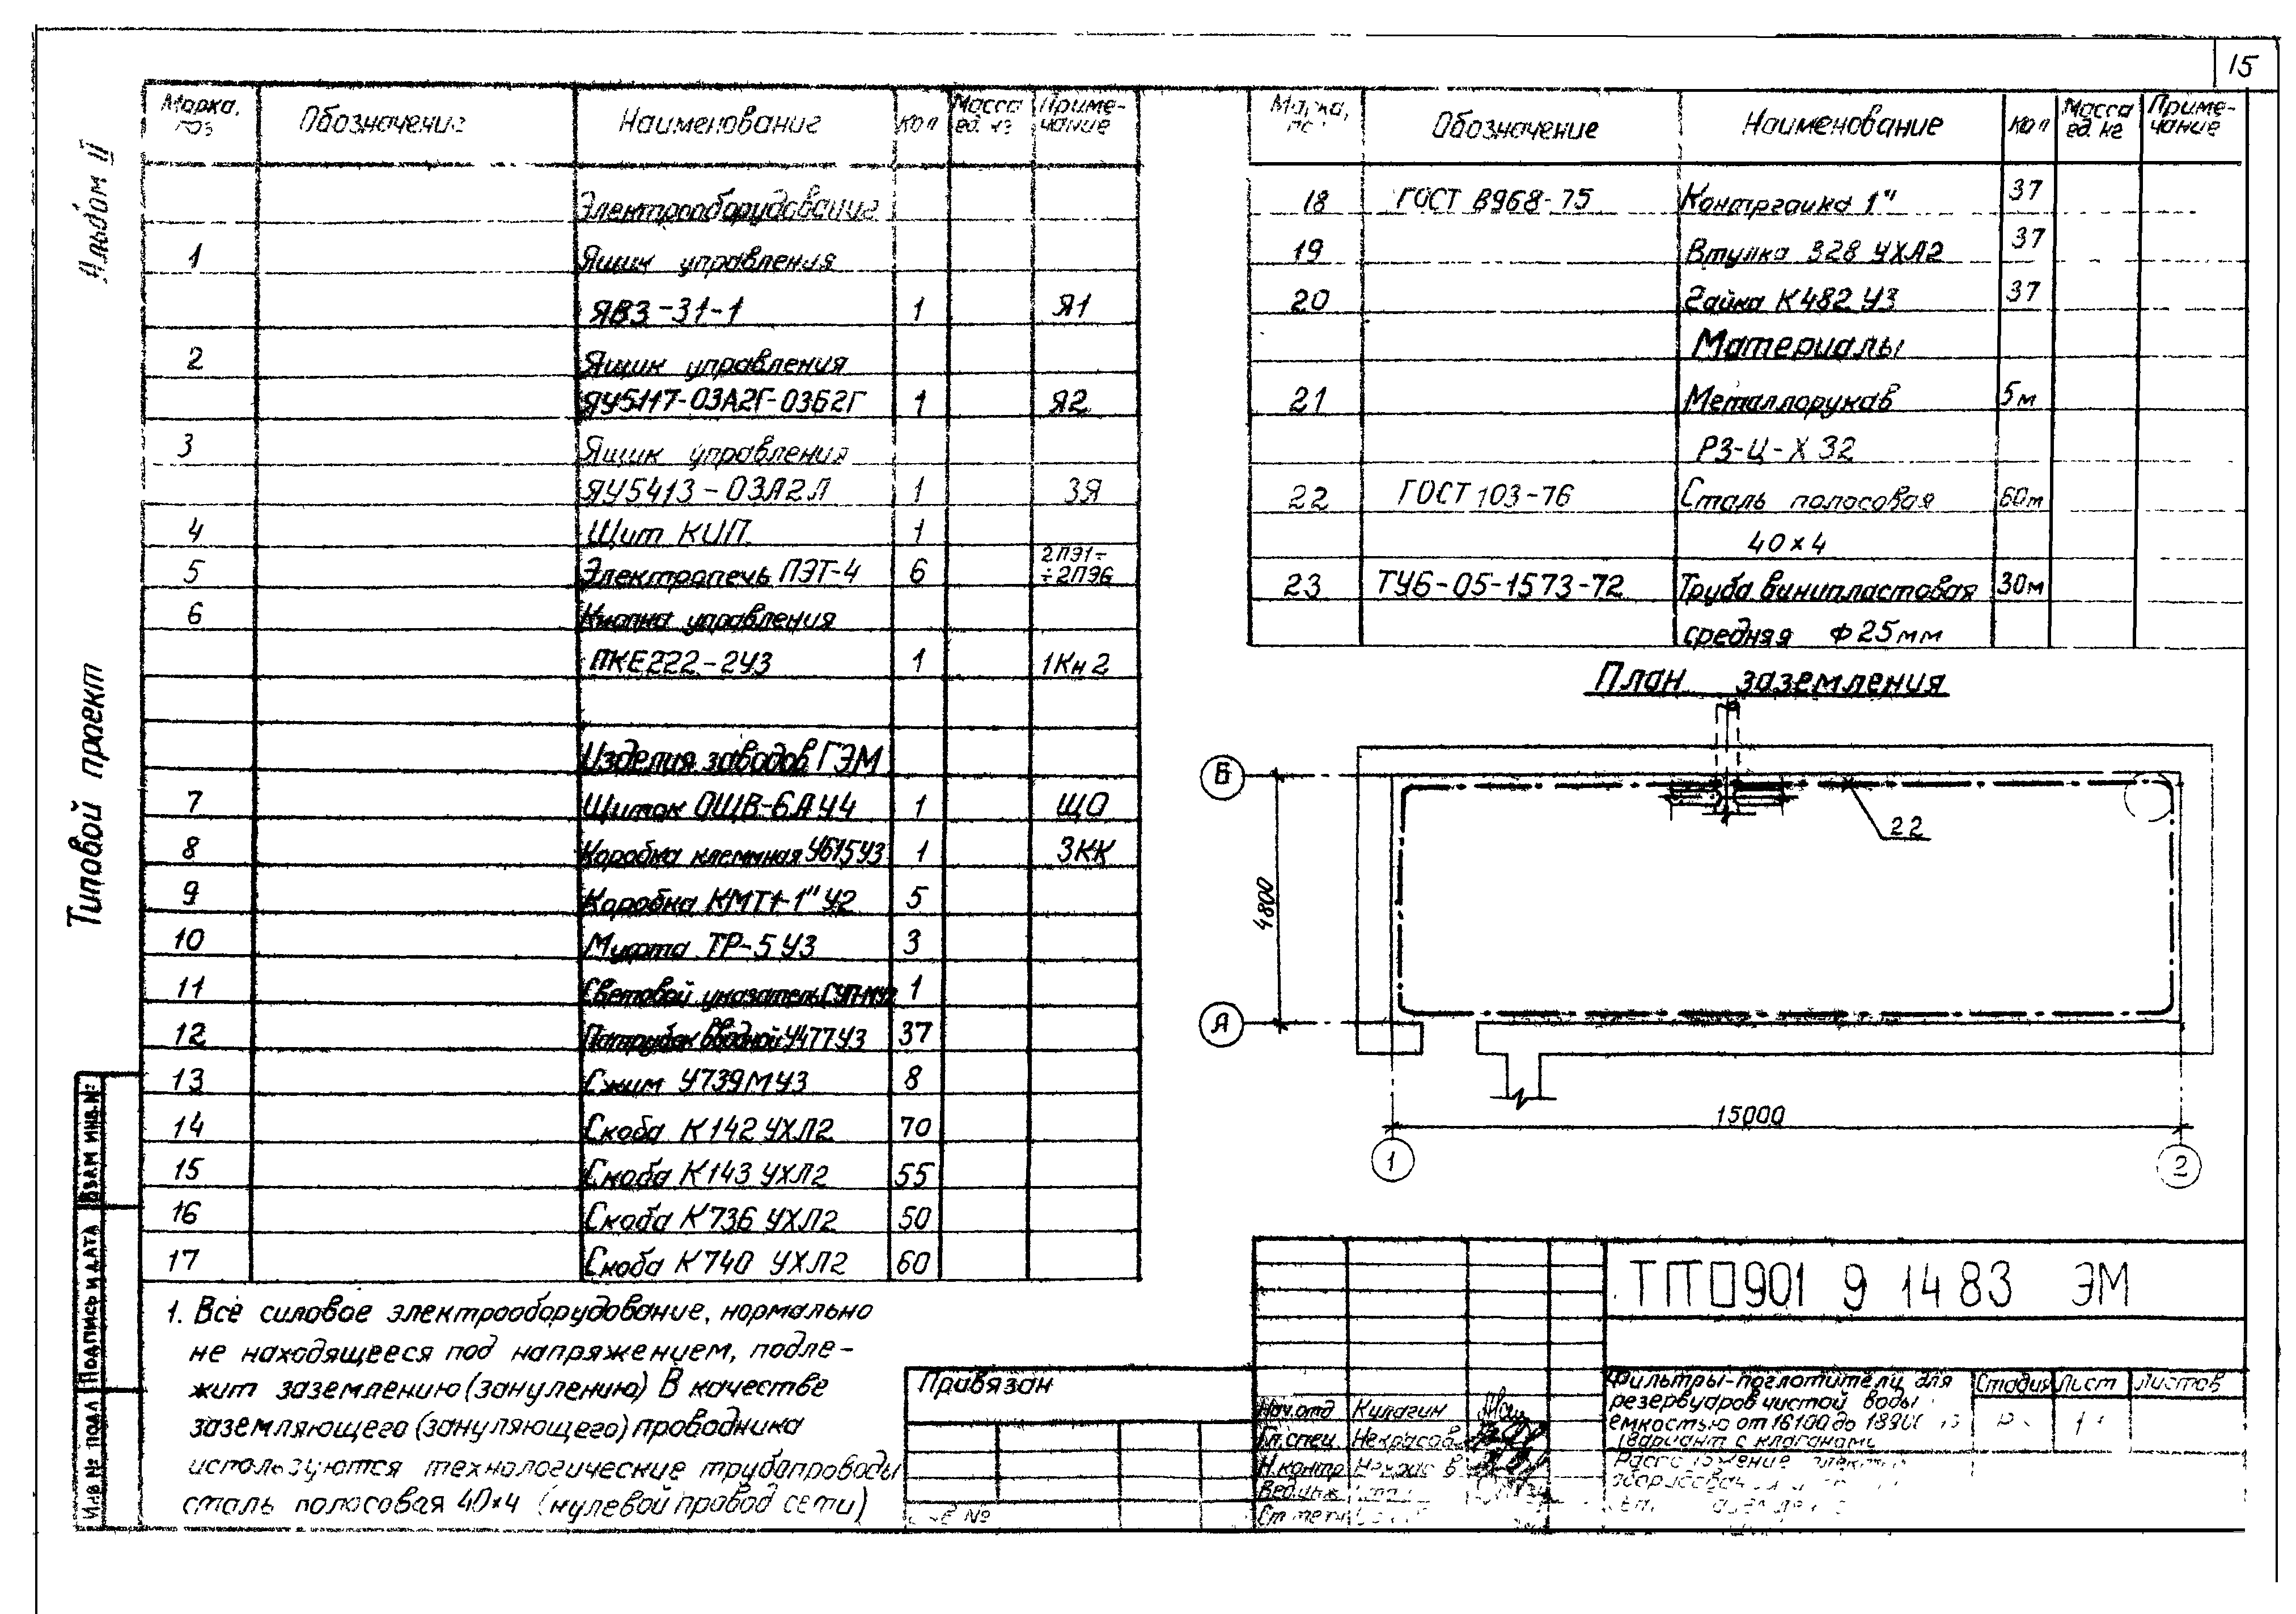 15
Альбом II
Типовой проект
Марка, поз
Обозначение
Наименование
Кол
Масса ед. кг
Приме-
чание
Электрооборудование
1 Ящик управления
ЯВЗ-31-1 1 Я1
2 Ящик управления
ЯУ5117-03А2Г-03Б2Г 1 Я2
3 Ящик управления
ЯУ5413-03А2Л 1 3Я
4 Щит КИП. 1
5 Электропечь ПЭТ-4 6 2ПЭ1÷
÷2ПЭ6
6 Кнопка управления
ПКЕ222-2У3 1 1Кн2
Изделия заводов ГЭМ
7 Щиток ОЩВ-6АУ4 1 ЩО
8 Коробка клеммная У615У3 1 3КК
9 Коробка КМТ1-1"У2 5
10 Муфта ТР-5У3 3
11 Световой указатель 1
12 Патрубок вводной У477У3 37
13 Сжим У739МУ3 8
14 Скоба К142УХЛ2 70
15 Скоба К143УХЛ2 55
16 Скоба К736УХЛ2 50
17 Скоба К740 УХЛ2 60
1. Все силовое электрооборудование, нормально
не находящееся под напряжением, подле-
жит заземлению (занулению) В качестве
заземляющего (зануляющего) проводника
используются технологические трубопроводы
сталь полосовая 40×4 (нулевой провод сети)
Марка,
Обозначение
Наименование
Кол
Масса ед. кг
Приме-
чание
18 ГОСТ 8968-75 Контргайка 1" 37
19 Втулка В28 УХЛ2 37
20 Гайка К482 У3 37
Материалы
21 Металлорукав 5м
РЗ-Ц-Х 32
22 ГОСТ 103-76 Сталь полосовая 60м
40×4
23 ТУ6-05-1573-72 Труба винипластовая 30м
средняя ф25мм
План заземления
Б
22
4800
А
15000
1
2
ТП 901 9 14 83 ЭМ
Привязан
Нач.отд Кулагин
Гл.спец. Некрасов
Н.контр
Вед.инж
Фильтры-поглотители для
резервуаров чистой воды
емкостью от 16100 до
(вариант с клапанами
Стадия Лист Листов
Инв № подл Подпись и дата Взам инв.№